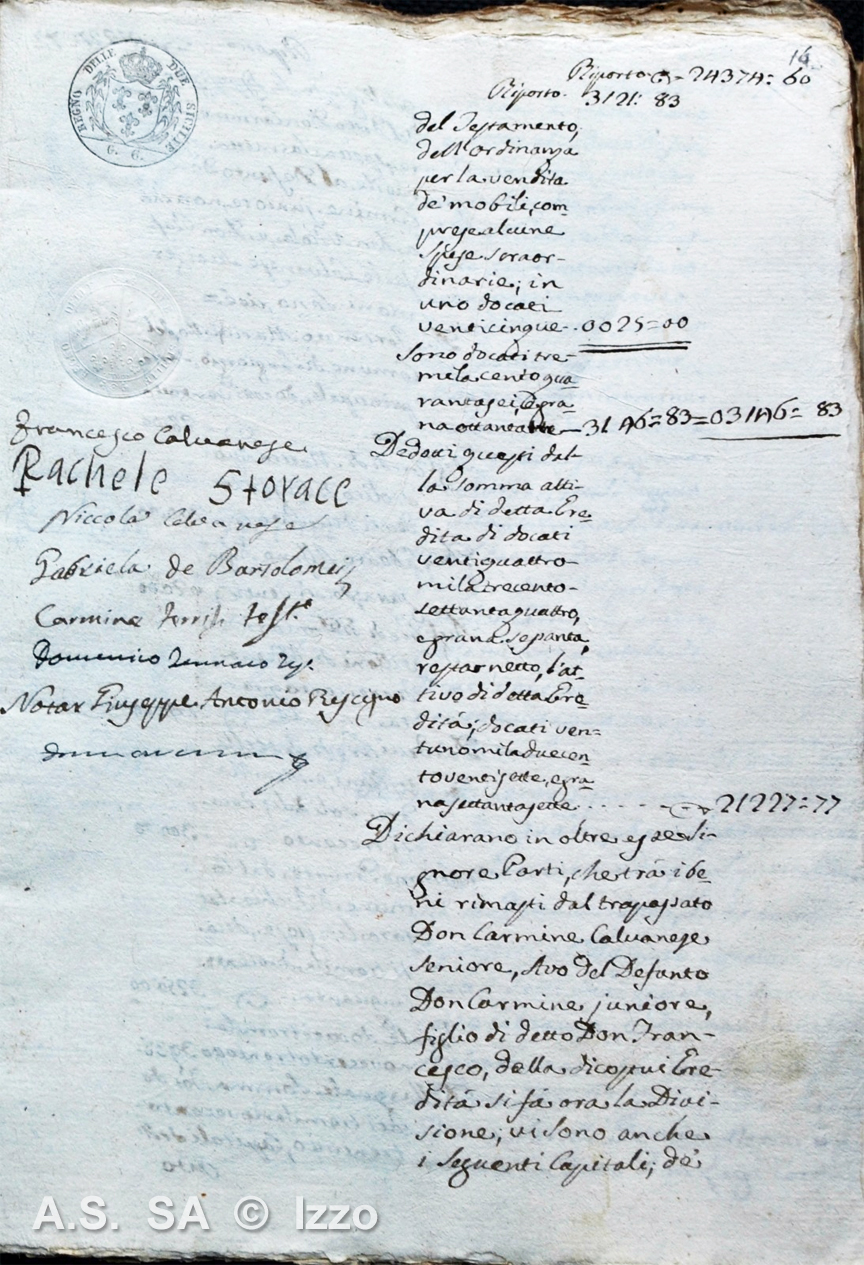 16
REGNO DELLE DUE SICILIE
G. G.
Riporto 24374=60
Riporto. 3121: 83
del Testamento,
dell'ordinanza
per la vendita
de' mobili, com-
prese alcune
spese straor-
dinarie; in
uno docati
venticinque 0025=00
Sono docati tre-
mila cento qua
rantasei, e gra-
na ottantatre 3146=83=03146=83
Dedotti questi dal-
la somma atti-
va di detta Ere
dita di docati
ventiquattro-
mila trecento-
settantaquattro,
e grana sessanta,
resta netto, l'at-
tivo di detta Ere
dità, docati ven-
tunomila duecen
toventisette, e gra-
na settantasette 21227=77
Dichiarano in oltre esse Si-
gnore Parti, che tra i be-
ni rimasti dal trapassato
Don Carmine Calvanese
seniore, Avo del Defunto
Don Carmine juniore,
figlio di detto Don Fran-
cesco, della di cui Ere-
dità si fa ora la Divi-
sione; vi sono anche
i seguenti Capitali; de'
Francesco Calvanese
Rachele Storace
Niccola Calvanese
Gabriela de Bartolomeis
Carmine test.e
Domenico Gennaro
Notar Giuseppe Antonio Rescigno
A.S. SA © Izzo